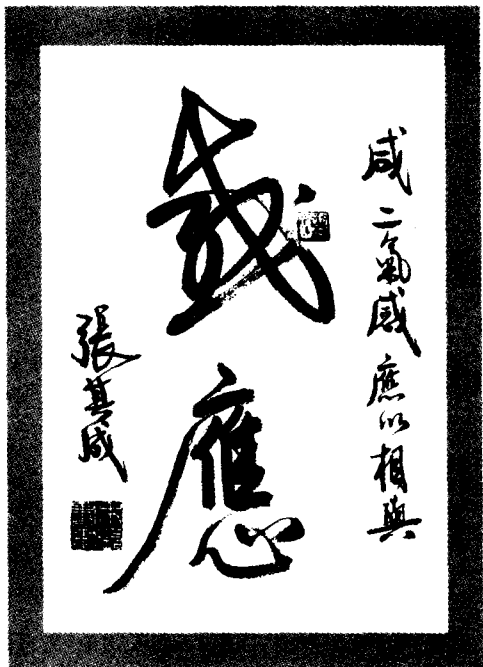 咸 二氣感應以相與
感應
張其成